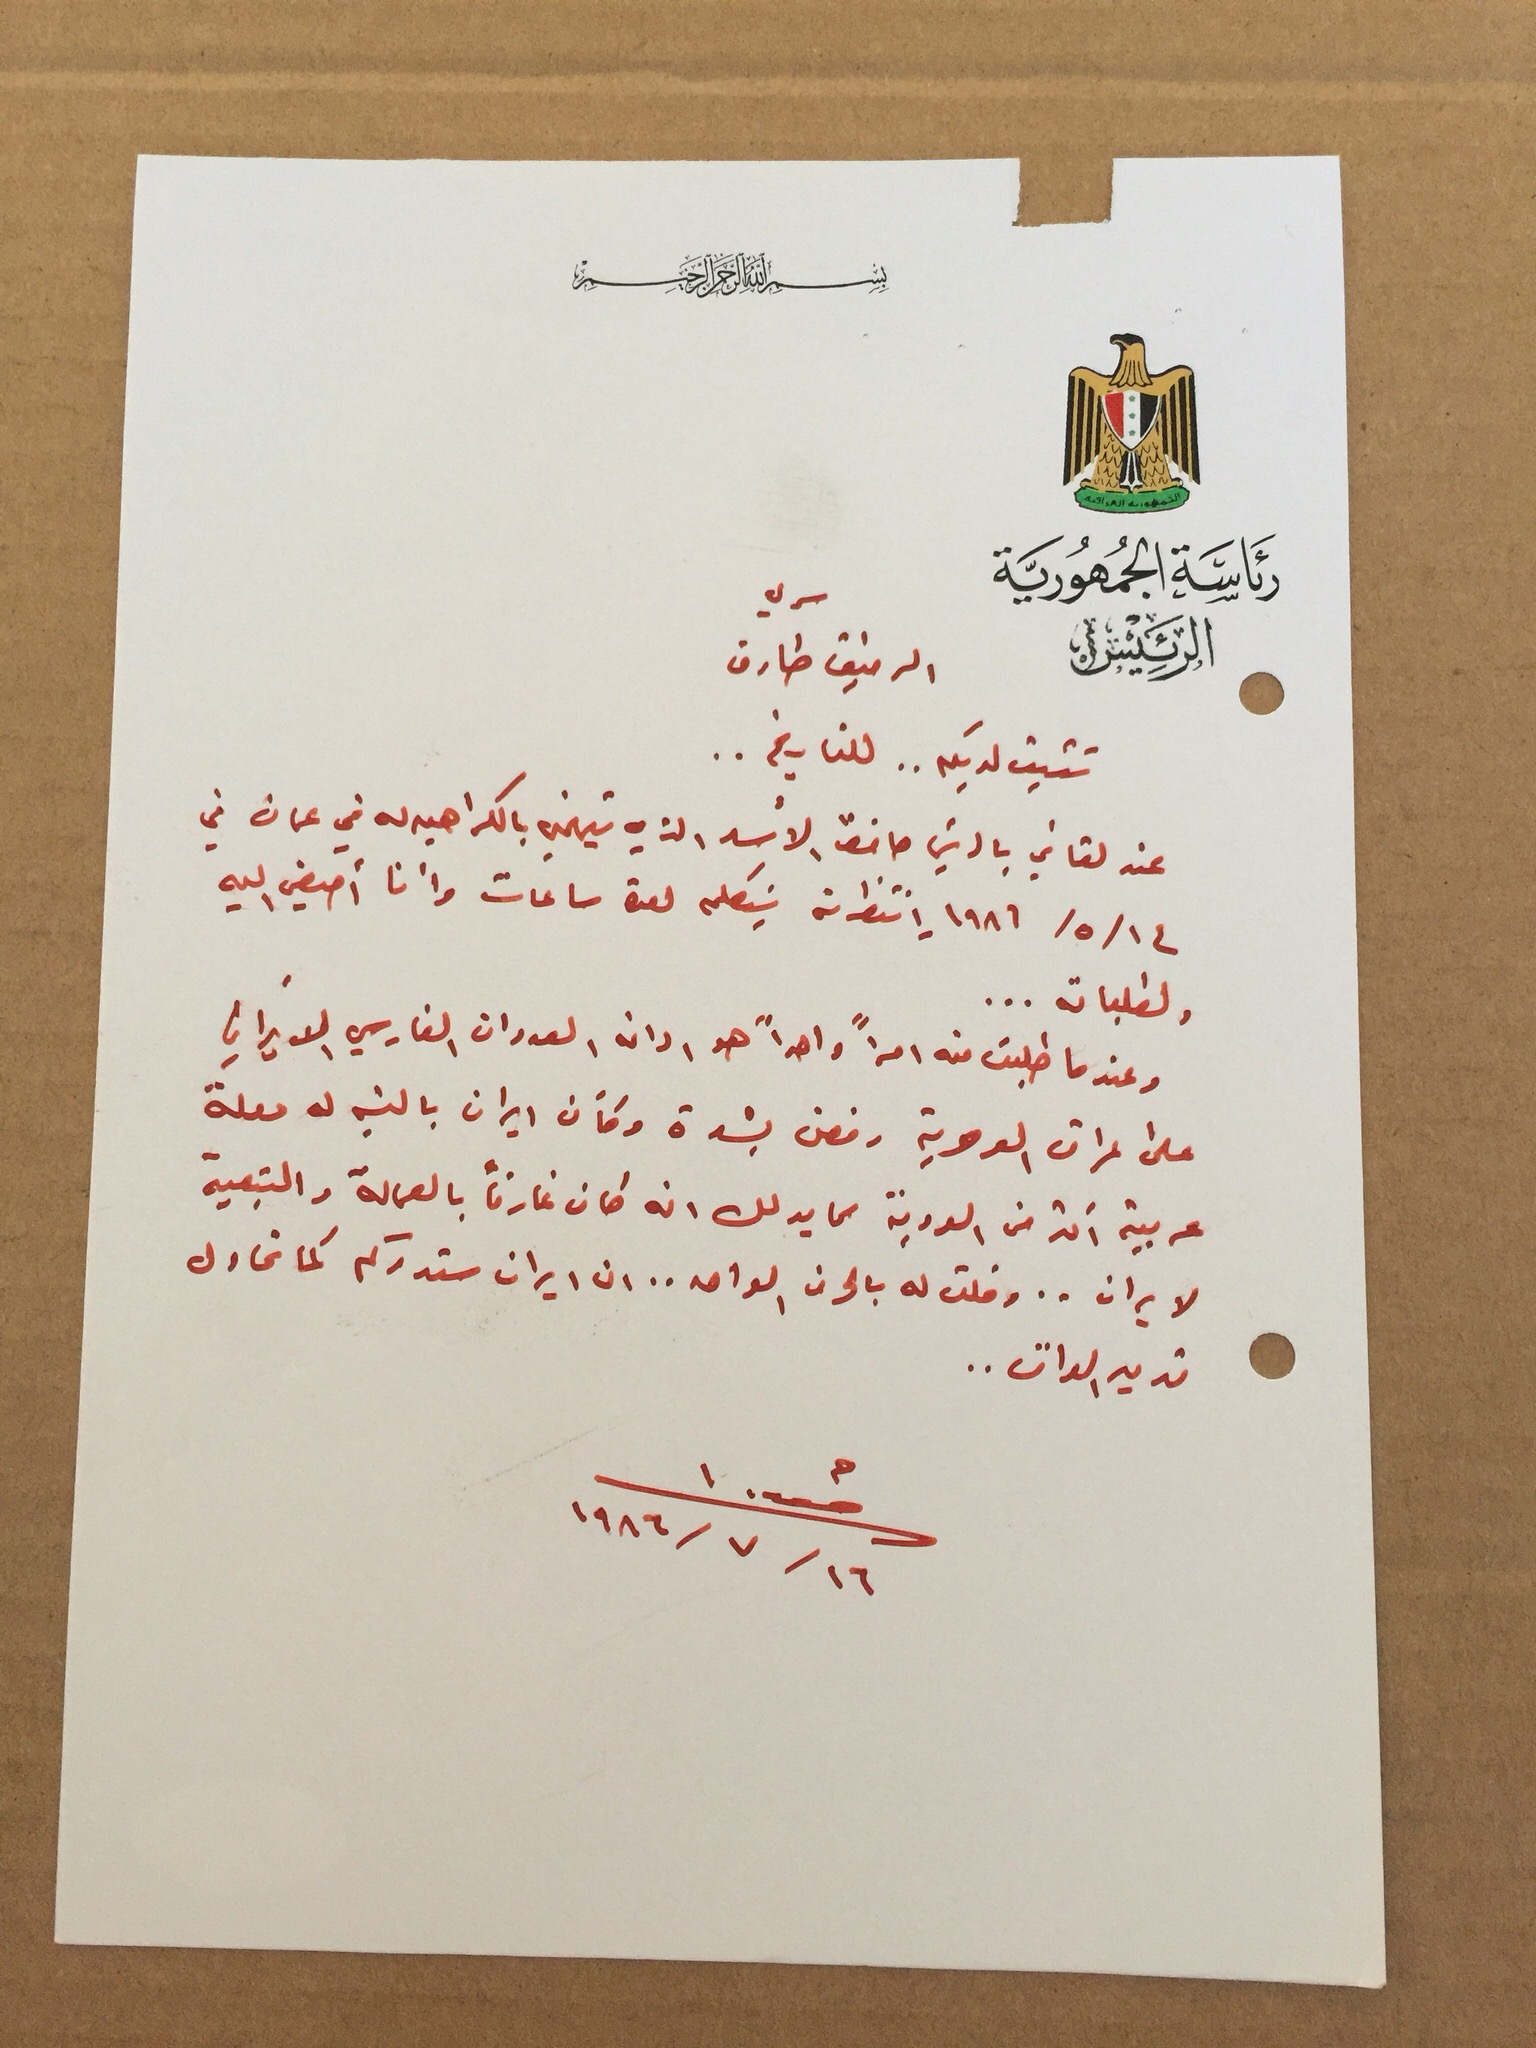 بسم الله الرحمن الرحيم
الجمهورية العراقية
رئاسة الجمهورية
الرئيس
سري
الرفيق طارق
تثبيت لديكم .. للتاريخ ..
عند لقائي بالرئيس حافظ الأسد الذي يتهمني بالكراهيه له في عمان في
١٤/٥/١٩٨٦ انتظرته ليتكلم لعدة ساعات وأنا أصغي اليه
ولطلباته ...
وعندما طلبت منه امراً واحداً هو ادانه العدوان الفارسي الايراني
على عراق العروبة رفض بشدة وكأن ايران بالنسبه له دولة
عربية أكثر من العروبة مما يدلل انه كان غارقاً بالعمالة والتبعية
لايران .. وقلت له بالحرف الواحد .. ان ايران ستدمركم كما تحاول
تدمير العراق ..
١٦/٧/١٩٨٦